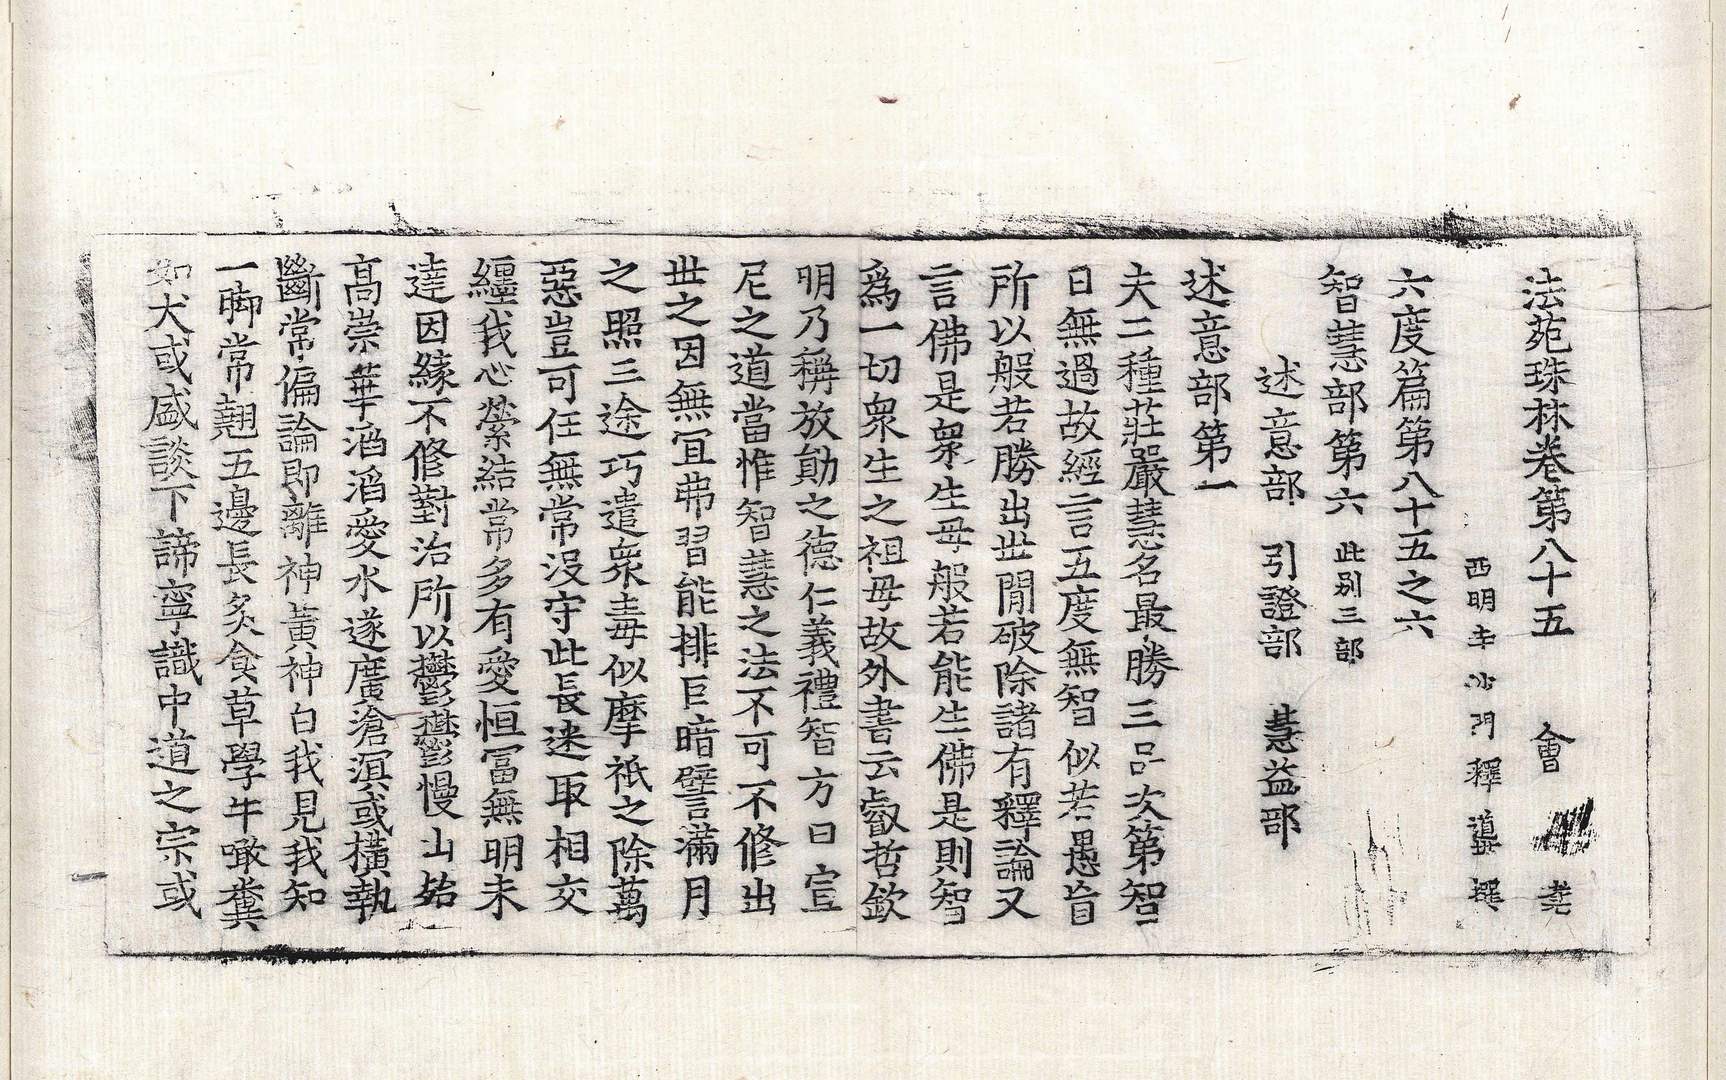 法苑珠林卷第八十五 會
西明寺沙門釋道撰
六度篇第八十五之六
智慧部第六 此別三部
述意部 引證部 慧益部
述意部第一
夫二種莊嚴慧名最勝三品次第智
曰無過故經言五度無智似若愚盲
所以般若勝出世閒破除諸有釋論又
言佛是衆生母般若能生佛是則智
爲一切衆生之祖母故外書云叡哲欽
明乃稱放勛之德仁義禮智方曰宣
尼之道當惟智慧之法不可不修出
世之因無冝弗習能排巨暗譬滿月
之照三途巧遣衆毒似摩祇之除萬
惡豈可任無常没守此長迷取相交
纏我心縈結常多有愛恒冨無明未
達因緣不修對治所以欝欝慢山始
髙崇華滔滔愛水遂廣滄溟或橫執
斷常偏論即離神黃神白我見我知
一脚常翹五邊長炙食草學牛噉糞
如犬或盛談下諦寧識中道之宗或